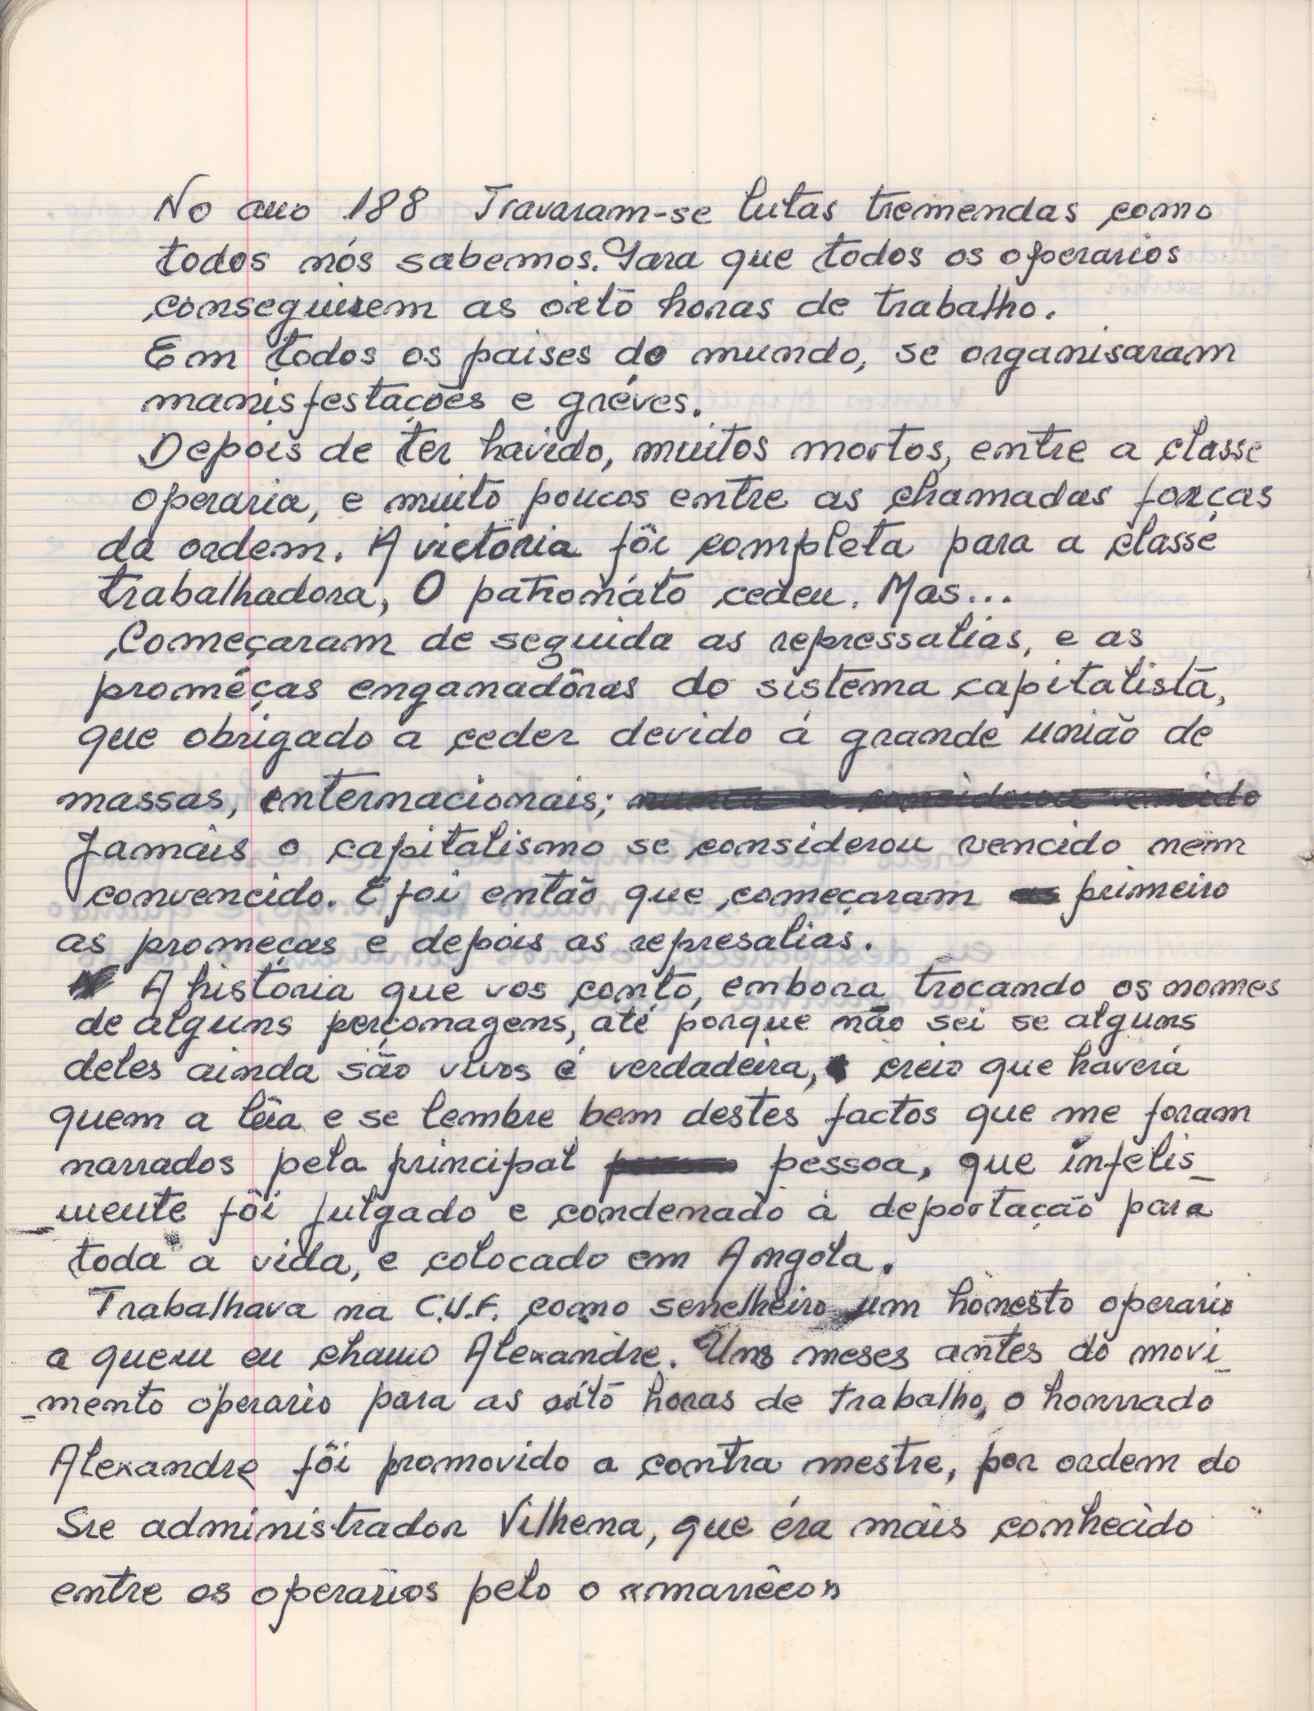 No ano 188 Travaram-se lutas tremendas como
todos nós sabemos. Para que todos os operarios
conseguisem as oito horas de trabalho.
Em todos os paises do mundo, se organisaram
manisfestações e gréves.
Depois de ter havido, muitos mortos, entre a classe
operaria, e muito poucos entre as chamadas forças
da ordem. A victoria fôi completa para a classe
trabalhadora, O patronáto cedeu. Mas...
Começaram de seguida as repressalias, e as
proméças enganadôras do sistema capitalista,
que obrigado a ceder devido á grande união de
massas, enternacionais; nunca se considerou vencido
Jamâis o capitalismo se considerou vencido nem
convencido. E foi então que começaram as primeiro
as promeças e depois as represalias.
A história que vos conto, embora trocando os nomes
de alguns perçonagens, até porque não sei se alguns
deles ainda são vivos é verdadeira, creio que haverá
quem a lêia e se lembre bem destes factos que me foram
narrados pela principal pessoa, que infelis_
_mente fôi julgado e condenado á deportação para
toda a vida, e colocado em Angola.
Trabalhava na C.U.F. como serelheiro um honesto operario
a quem eu chamo Alexandre. Uns meses antes do movi_
_mento operario para as oito horas de trabalho, o honrrado
Alexandre fôi promovido a contra mestre, por ordem do
Sre administrador Vilhena, que éra mais conhecido
entre os operarios pelo o «marrêco»